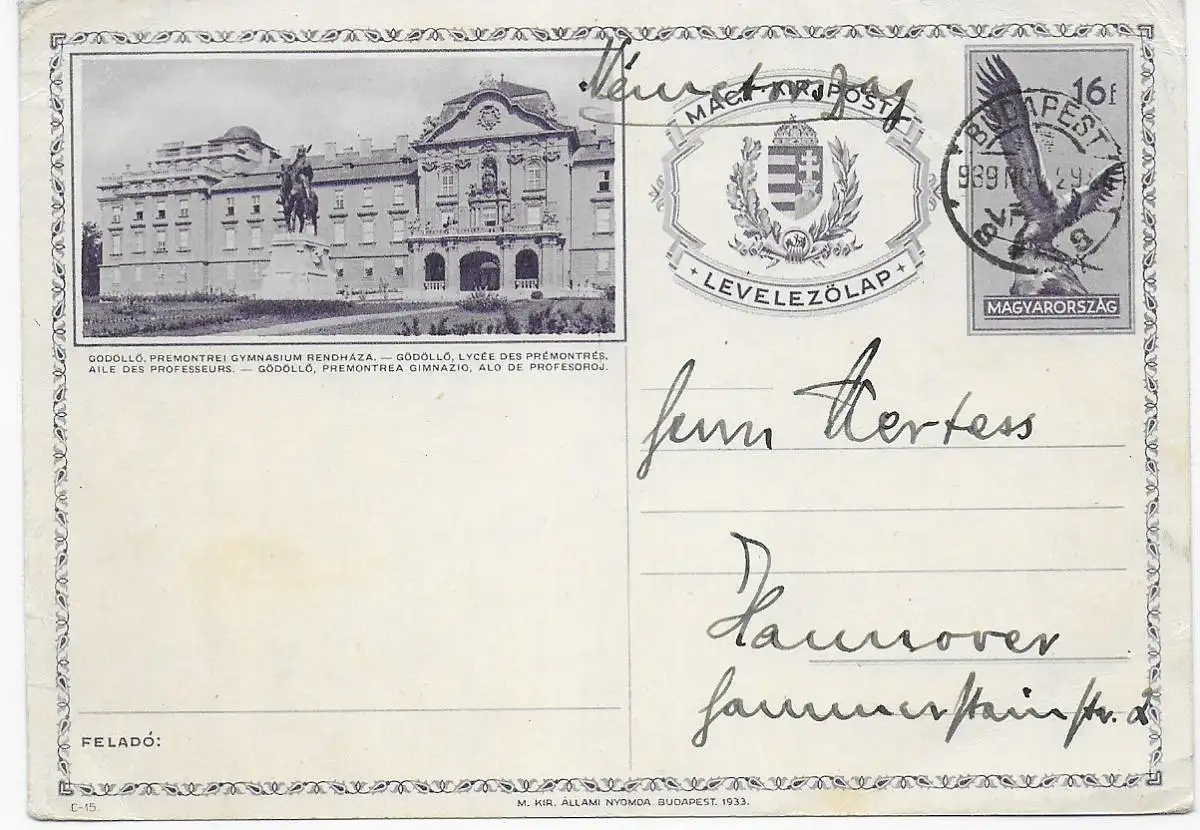 Németország
MAGY. KIR. POSTA
LEVELEZŐLAP
16 f
MAGYARORSZÁG
BUDAPEST
939
29
GÖDÖLLŐ, PREMONTREI GYMNASIUM RENDHÁZA. — GÖDÖLLŐ, LYCÉE DES PRÉMONTRÉS,
AILE DES PROFESSEURS. — GÖDÖLLŐ, PREMONTREA GIMNAZIO, ALO DE PROFESOROJ.
Herrn Kertess
Hannover
Hammersteinstr. 2
FELADÓ:
C-15.
M. KIR. ÁLLAMI NYOMDA. BUDAPEST. 1933.